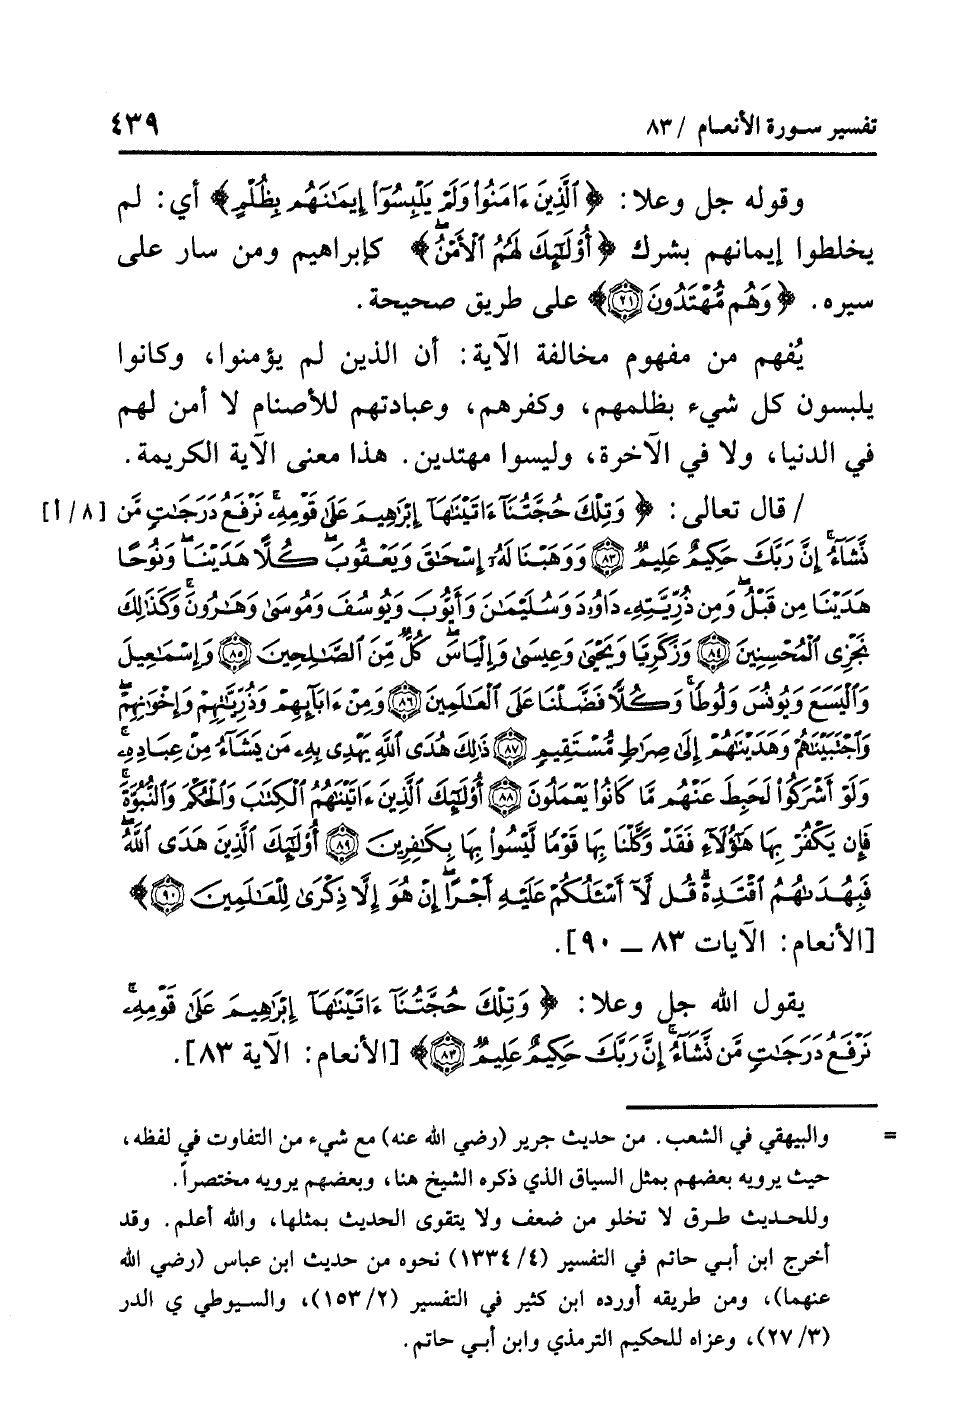 تفسير سورة الأنعام / ٨٣ ٤٣٩
وقوله جل وعلا: ﴿ٱلَّذِينَ ءَامَنُوا۟ وَلَمْ يَلْبِسُوٓا۟ إِيمَـٰنَهُم بِظُلْمٍ﴾ أي: لم
يخلطوا إيمانهم بشرك ﴿أُو۟لَـٰٓئِكَ لَهُمُ ٱلْأَمْنُ﴾ كإبراهيم ومن سار على
سيره. ﴿وَهُم مُّهْتَدُونَ ٢١﴾ على طريق صحيحة.
يُفهم من مفهوم مخالفة الآية: أن الذين لم يؤمنوا، وكانوا
يلبسون كل شيء بظلمهم، وكفرهم، وعبادتهم للأصنام لا أمن لهم
في الدنيا، ولا في الآخرة، وليسوا مهتدين. هذا معنى الآية الكريمة.
/ قال تعالى: ﴿وَتِلْكَ حُجَّتُنَآ ءَاتَيْنَـٰهَآ إِبْرَٰهِيمَ عَلَىٰ قَوْمِهِۦ ۚ نَرْفَعُ دَرَجَـٰتٍ مَّن [٨/أ]
نَّشَآءُ ۗ إِنَّ رَبَّكَ حَكِيمٌ عَلِيمٌ ٨٣ وَوَهَبْنَا لَهُۥٓ إِسْحَـٰقَ وَيَعْقُوبَ ۚ كُلًّا هَدَيْنَا ۚ وَنُوحًا
هَدَيْنَا مِن قَبْلُ ۖ وَمِن ذُرِّيَّتِهِۦ دَاوُۥدَ وَسُلَيْمَـٰنَ وَأَيُّوبَ وَيُوسُفَ وَمُوسَىٰ وَهَـٰرُونَ ۚ وَكَذَٰلِكَ
نَجْزِى ٱلْمُحْسِنِينَ ٨٤ وَزَكَرِيَّا وَيَحْيَىٰ وَعِيسَىٰ وَإِلْيَاسَ ۖ كُلٌّ مِّنَ ٱلصَّـٰلِحِينَ ٨٥ وَإِسْمَـٰعِيلَ
وَٱلْيَسَعَ وَيُونُسَ وَلُوطًا ۚ وَكُلًّا فَضَّلْنَا عَلَى ٱلْعَـٰلَمِينَ ٨٦ وَمِنْ ءَابَآئِهِمْ وَذُرِّيَّـٰتِهِمْ وَإِخْوَٰنِهِمْ ۖ
وَٱجْتَبَيْنَـٰهُمْ وَهَدَيْنَـٰهُمْ إِلَىٰ صِرَٰطٍ مُّسْتَقِيمٍ ٨٧ ذَٰلِكَ هُدَى ٱللَّهِ يَهْدِى بِهِۦ مَن يَشَآءُ مِنْ عِبَادِهِۦ ۚ
وَلَوْ أَشْرَكُوا۟ لَحَبِطَ عَنْهُم مَّا كَانُوا۟ يَعْمَلُونَ ٨٨ أُو۟لَـٰٓئِكَ ٱلَّذِينَ ءَاتَيْنَـٰهُمُ ٱلْكِتَـٰبَ وَٱلْحُكْمَ وَٱلنُّبُوَّةَ ۚ
فَإِن يَكْفُرْ بِهَا هَـٰٓؤُلَآءِ فَقَدْ وَكَّلْنَا بِهَا قَوْمًا لَّيْسُوا۟ بِهَا بِكَـٰفِرِينَ ٨٩ أُو۟لَـٰٓئِكَ ٱلَّذِينَ هَدَى ٱللَّهُ ۖ
فَبِهُدَىٰهُمُ ٱقْتَدِهْ ۗ قُل لَّآ أَسْـَٔلُكُمْ عَلَيْهِ أَجْرًا ۖ إِنْ هُوَ إِلَّا ذِكْرَىٰ لِلْعَـٰلَمِينَ ٩٠﴾
[الأنعام: الآيات ٨٣ ــ ٩٠].
يقول الله جل وعلا: ﴿وَتِلْكَ حُجَّتُنَآ ءَاتَيْنَـٰهَآ إِبْرَٰهِيمَ عَلَىٰ قَوْمِهِۦ ۚ
نَرْفَعُ دَرَجَـٰتٍ مَّن نَّشَآءُ ۗ إِنَّ رَبَّكَ حَكِيمٌ عَلِيمٌ ٨٣﴾ [الأنعام: الآية ٨٣].
= والبيهقي في الشعب. من حديث جرير (رضي الله عنه) مع شيء من التفاوت في لفظه،
حيث يرويه بعضهم بمثل السياق الذي ذكره الشيخ هنا، وبعضهم يرويه مختصراً.
وللحديث طرق لا تخلو من ضعف ولا يتقوى الحديث بمثلها، والله أعلم. وقد
أخرج ابن أبي حاتم في التفسير (٤/١٣٣٤) نحوه من حديث ابن عباس (رضي الله
عنهما)، ومن طريقه أورده ابن كثير في التفسير (٢/١٥٣)، والسيوطي ي الدر
(٣/٢٧)، وعزاه للحكيم الترمذي وابن أبي حاتم.